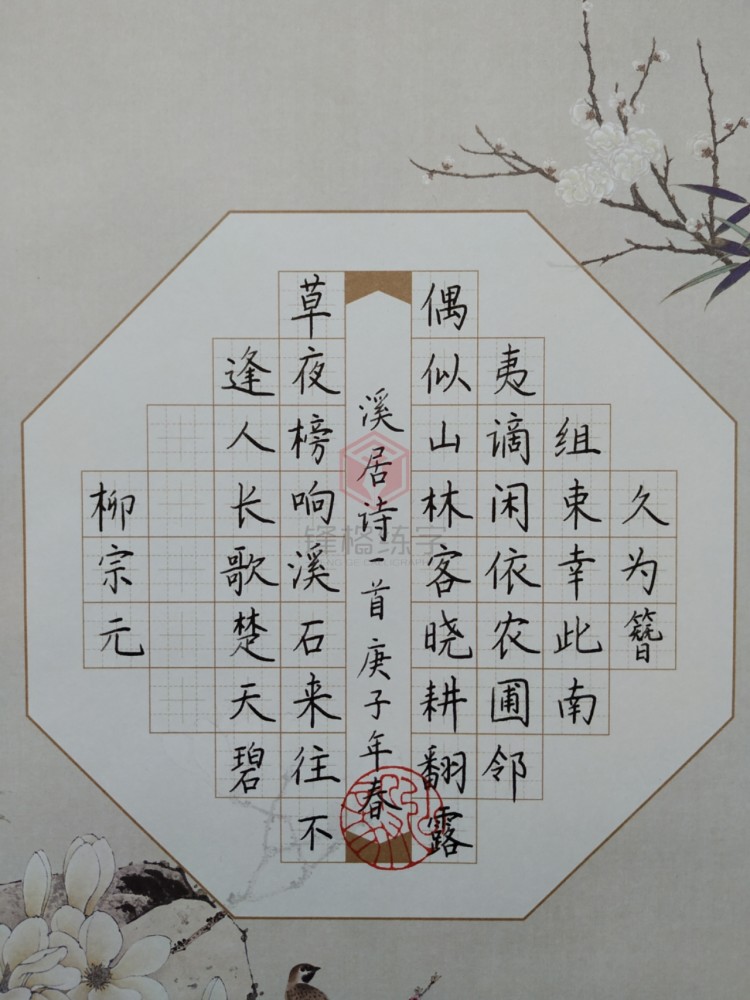 久为簪
组束幸此南
夷谪闲依农圃邻
偶似山林客晓耕翻露
溪居诗一首庚子年春
草夜榜响溪石来往不
逢人长歌楚天碧
柳宗元
锋格练字